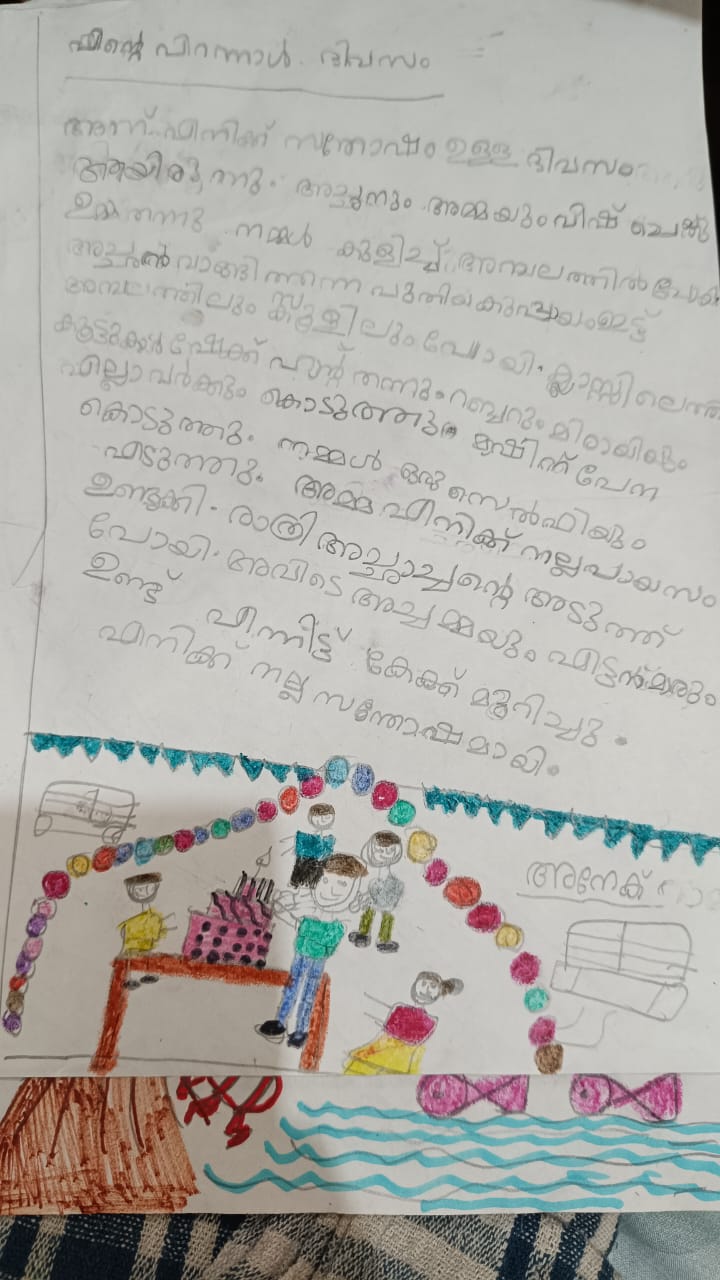 എന്റെ പിറന്നാൾ ദിവസം
അന്ന് എനിക്ക് സന്തോഷം ഉള്ള ദിവസം
ആയിരുന്നു. അച്ഛനും അമ്മയും വിഷ് ചെയ്തു
ഉമ്മ തന്നു. നമ്മൾ കുളിച്ച് അമ്പലത്തിൽ പോകാ
അച്ഛൻ വാങ്ങി ത്തന്ന പുതിയ കുപ്പായം ഇട്ട്
അമ്പലത്തിലും സ്കൂളിലും പോയി. ക്ലാസ്സിലെത്തി
കൂട്ടുകാർ ഷേക്ക് ഹാന്റ് തന്നു. റബ്ബറും മിഠായിയും
എല്ലാവർക്കും കൊടുത്തു. മാഷിന് പേന
കൊടുത്തു. നമ്മൾ ഒരു സെൽഫിയും
എടുത്തു. അമ്മ എനിക്ക് നല്ല പായസം
ഉണ്ടാക്കി. രാത്രി അച്ഛാച്ചന്റെ അടുത്ത്
പോയി. അവിടെ അച്ഛമ്മയും ഏട്ടൻമാരും
ഉണ്ട് എന്നിട്ട് കേക്ക് മുറിച്ചു.
എനിക്ക് നല്ല സന്തോഷമായി.
അനേക്